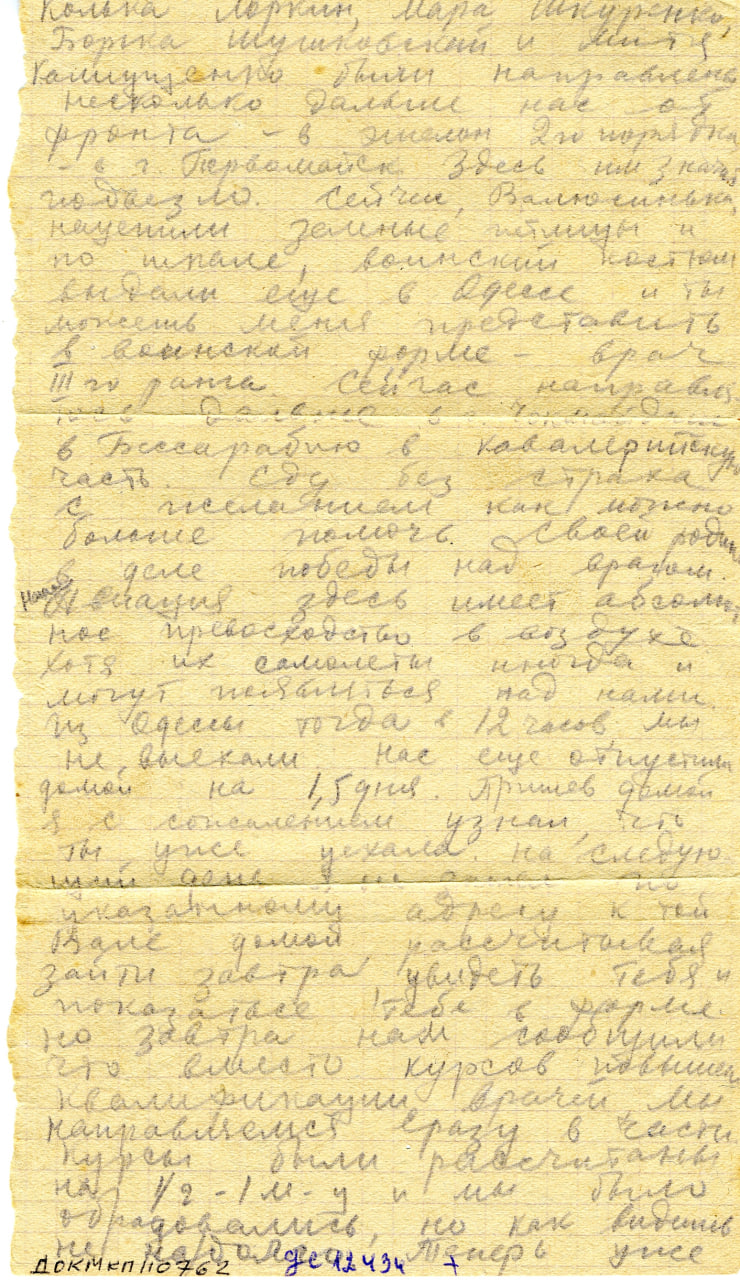 Колька Лоркин, Мара Шкуренко,
Борька Шушковский и Митя
Камущенко были направлены
несколько дальше нас от
фронта – в эшелон 2го порядка
– в г. Первомайск. Здесь им значит
подвезло. Сейчас, Валюсинька,
нацепили зеленые петлицы и
по шпале, воинский костюм
выдали еще в Одессе и ты
можешь меня представить
в воинской форме – врач
III го ранга. Сейчас направля
юсь дальше в
в Бессарабию в кавалерийскую
часть. Еду без страха
с желанием как можно
больше помочь своей родине
в деле победы над врагом.
Наша авиация здесь имеет абсолют
ное превосходство в воздухе
хотя их самолеты иногда и
могут появиться над нами.
Из Одессы тогда в 12 часов мы
не выехали. Нас еще отпустили
домой на 1,5 дня. Пришев домой
я с сожалением узнал, что
ты уже уехала. На следую
щий день я не по
указанному адресу к той
Вале домой, рассчитывая
зайти завтра, увидеть тебя и
показаться тебе в форме.
но завтра нам сообщили
что вместо курсов повышения
квалификации врачей мы
направляемся сразу в части
Курсы были рассчитаны
на 1/2 - 1 м-ц и мы было
обрадовались, но как видишь
не надолго. Теперь уже
ДОКМКП110762 дс12434 7